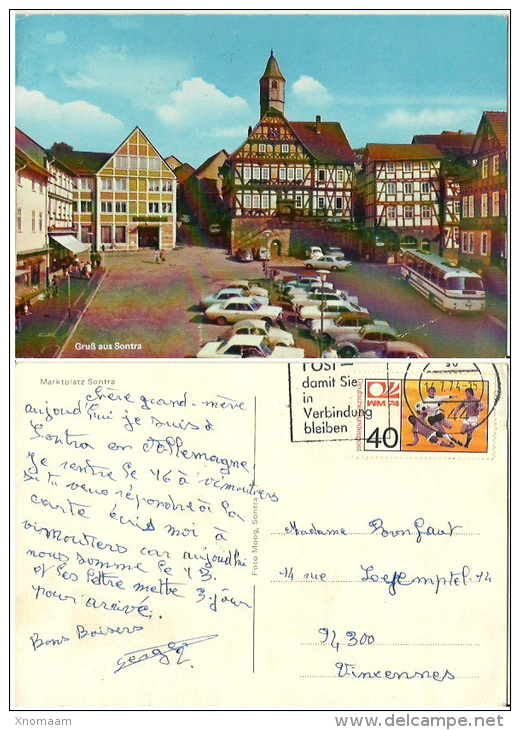 Gruß aus Sontra
Marktplatz Sontra
chère grand-mère
aujourd'hui je suis à
Sontra en Allemagne
je rentre le 16 à vimoutiers
si tu veux répondre à la
carte écris moi à
vimoutiers car aujourd'hui
nous somme le 13
et les lettre mette 3 jour
pour arivé.
Bons Baisers
Foto Moog, Sontra
Post
damit Sie
in
Verbindung
bleiben
14.7.74-15
Deutsche Bundespost
WM 74
40
Madame Bonfaut
14 rue
94300
Vincennes
Xnomaam
www.delcampe.net